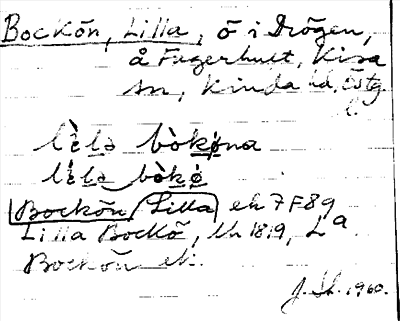 Bockön, Lilla, ö i Drögen,
å Fugerhult, Kisa
sn, Kinda hd, Östg.
l.
lèlə bòkøna
lélə bòkø
Bockön, Lilla ek 7F8g
Lilla Bockö, lh 1819, L
Bockön ek.
1960.